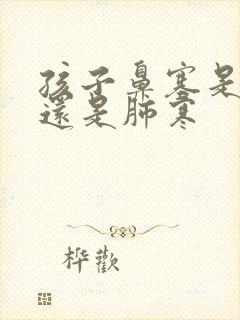 孩子鼻塞是
還是肺寒
桦歡